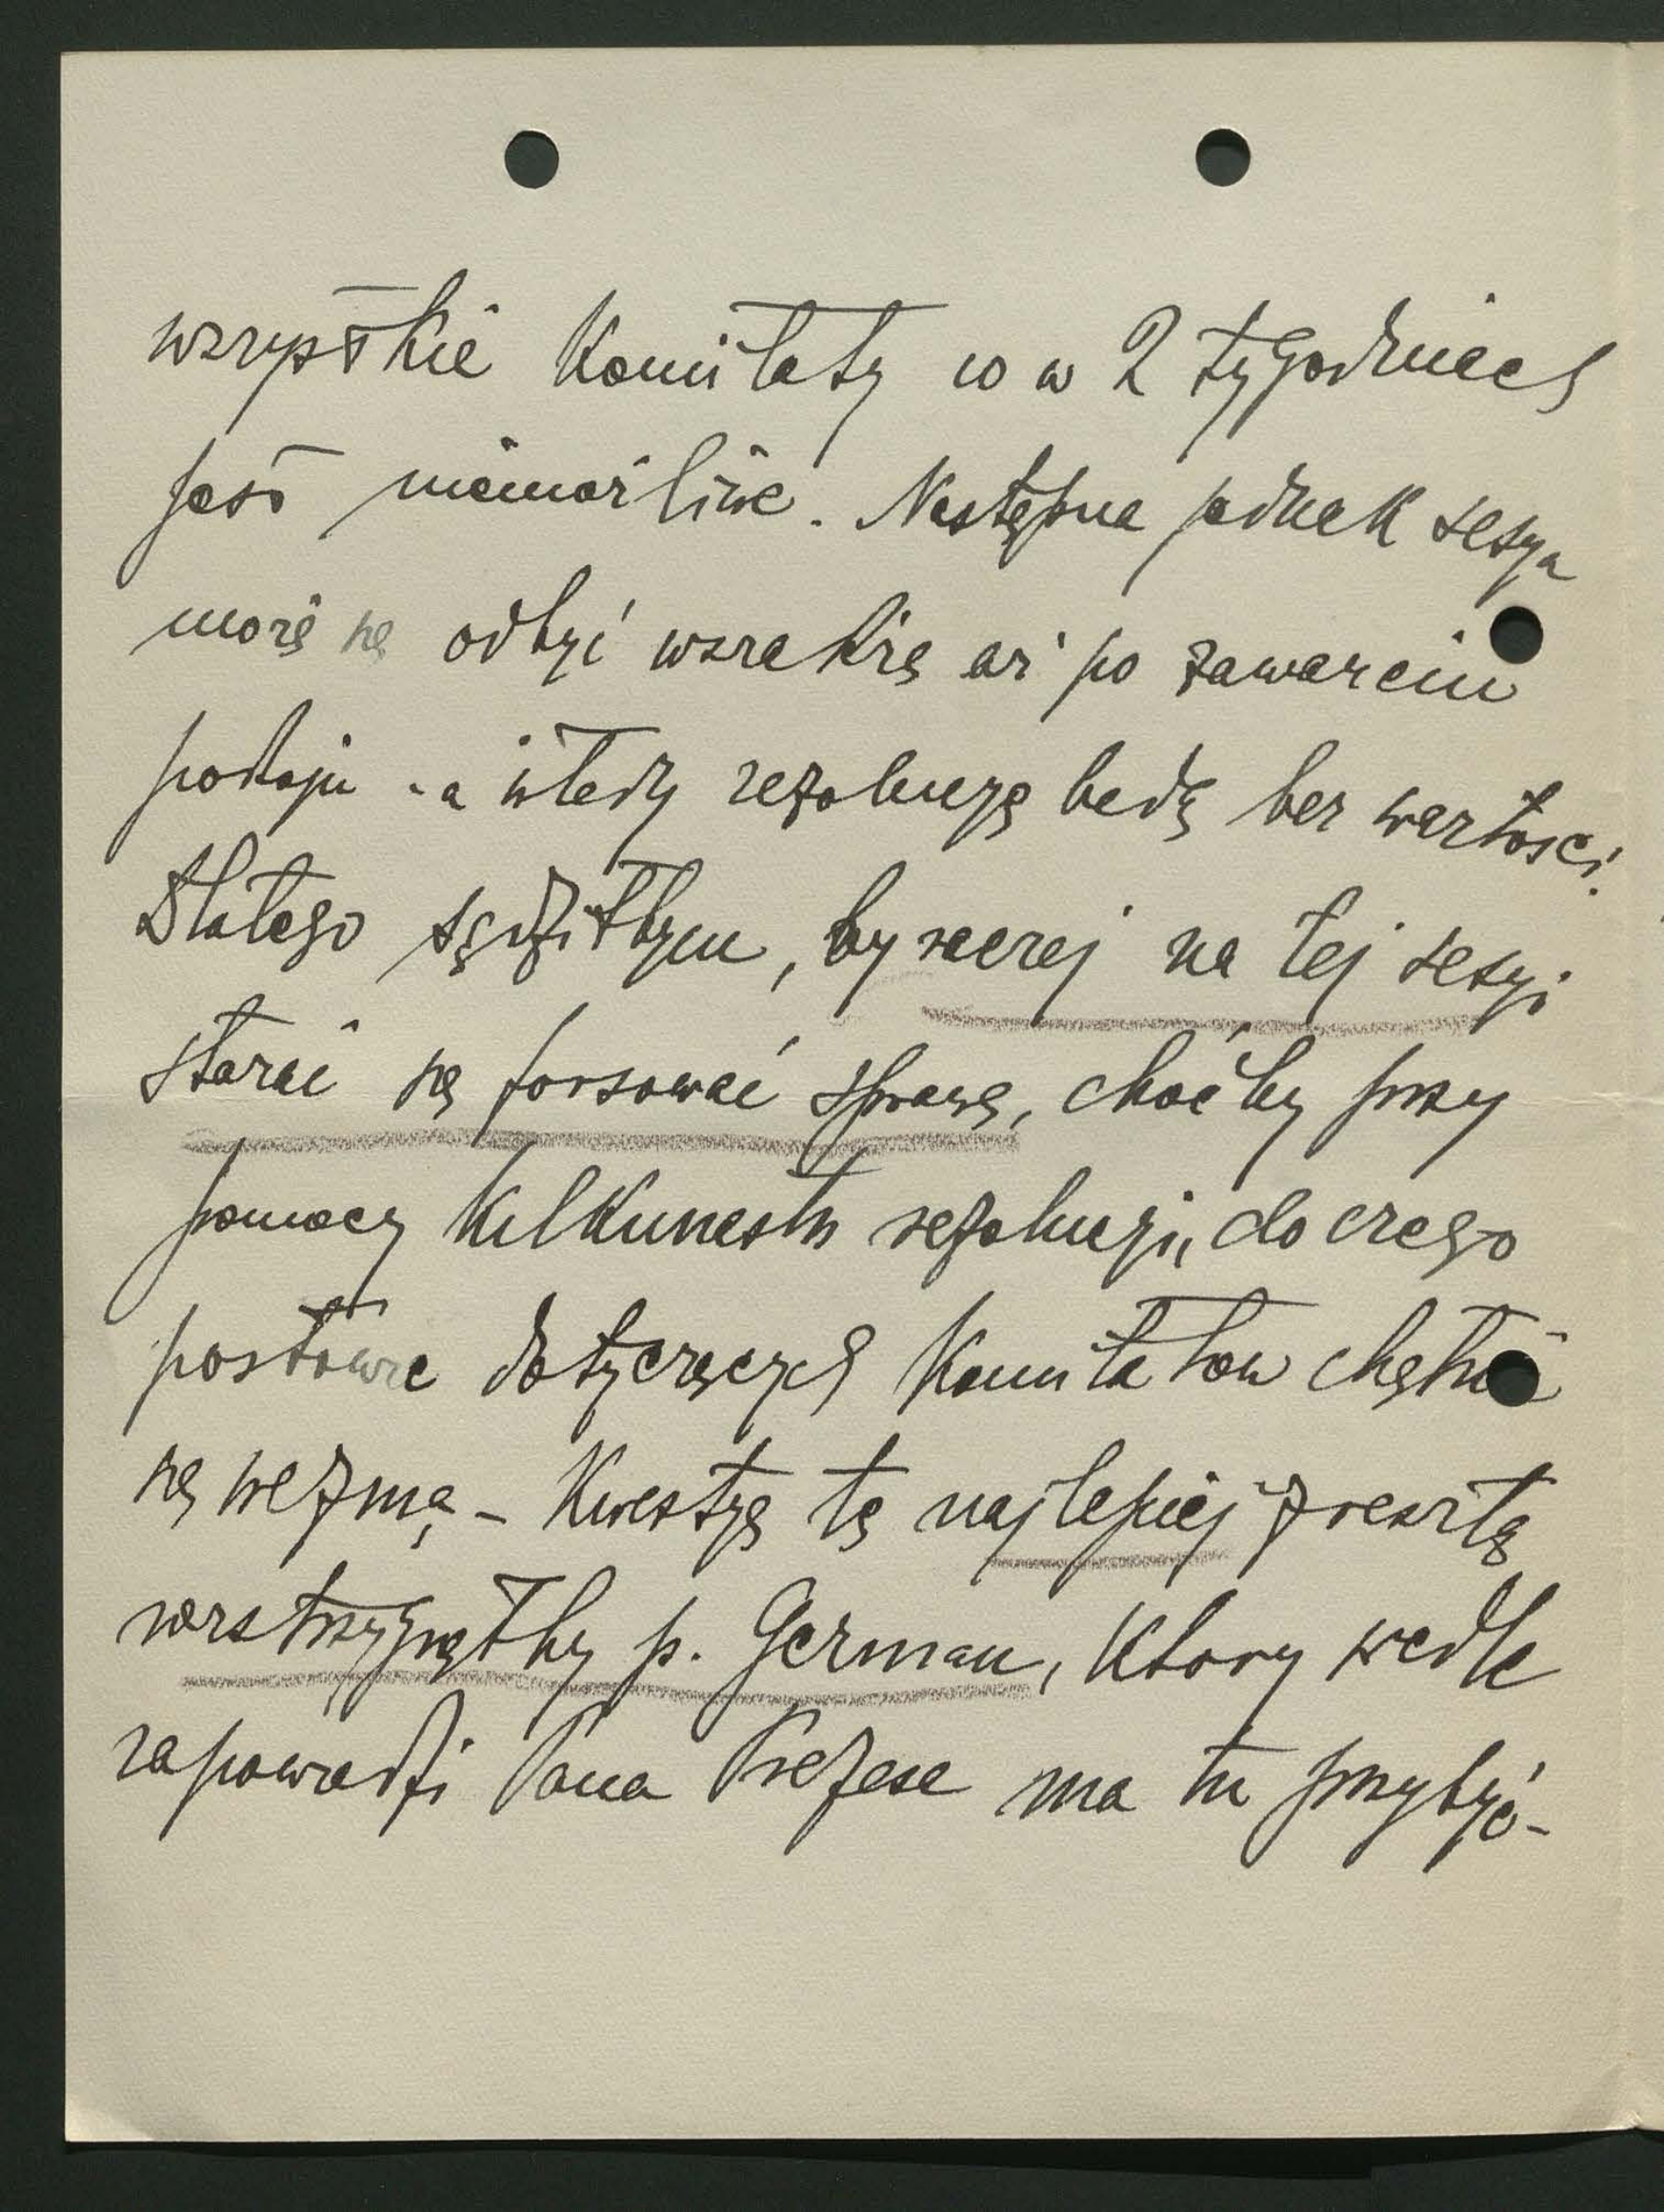 wszystkie Komitaty co w 2 tygodniach
jest niemożliwe. Następna jednak sesya
może się odbyć wszakże aż po zawarciu
pokoju - a wtedy rezolucye będą bez wartości.
Dlatego sądziłbym, by raczej na tej sesyi
starać się forsować sprawę, choćby przy
pomocy kilkunastu rezolucyi, do czego
posłowie dotyczących Komitatów chętnie
się wezmą - Kwestyę tę najlepiej zresztą
rozstrzygnąłby p. German, który wedle
zapowiedzi Pana Prezesa ma tu przybyć -